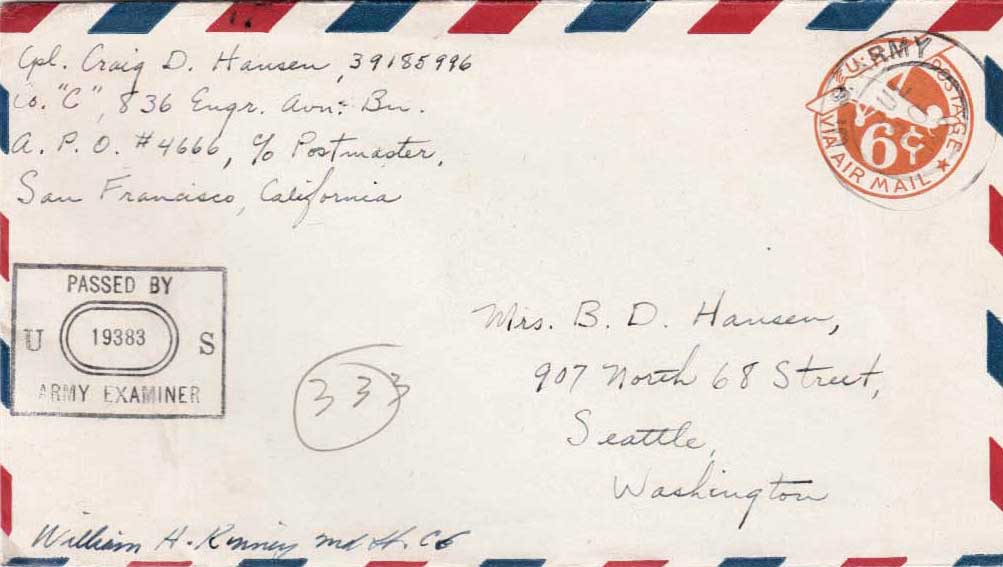 Cpl. Craig D. Hansen, 39185996
Co. "C", 836 Engr. Avn. Bn.
A. P. O. #4666, c/o Postmaster,
San Francisco, California
U.S. ARMY
POSTAGE
6¢
VIA AIR MAIL
PASSED BY
U 19383 S
ARMY EXAMINER
333
Mrs. B. D. Hansen,
907 North 68 Street,
Seattle,
Washington
William H. Kinney